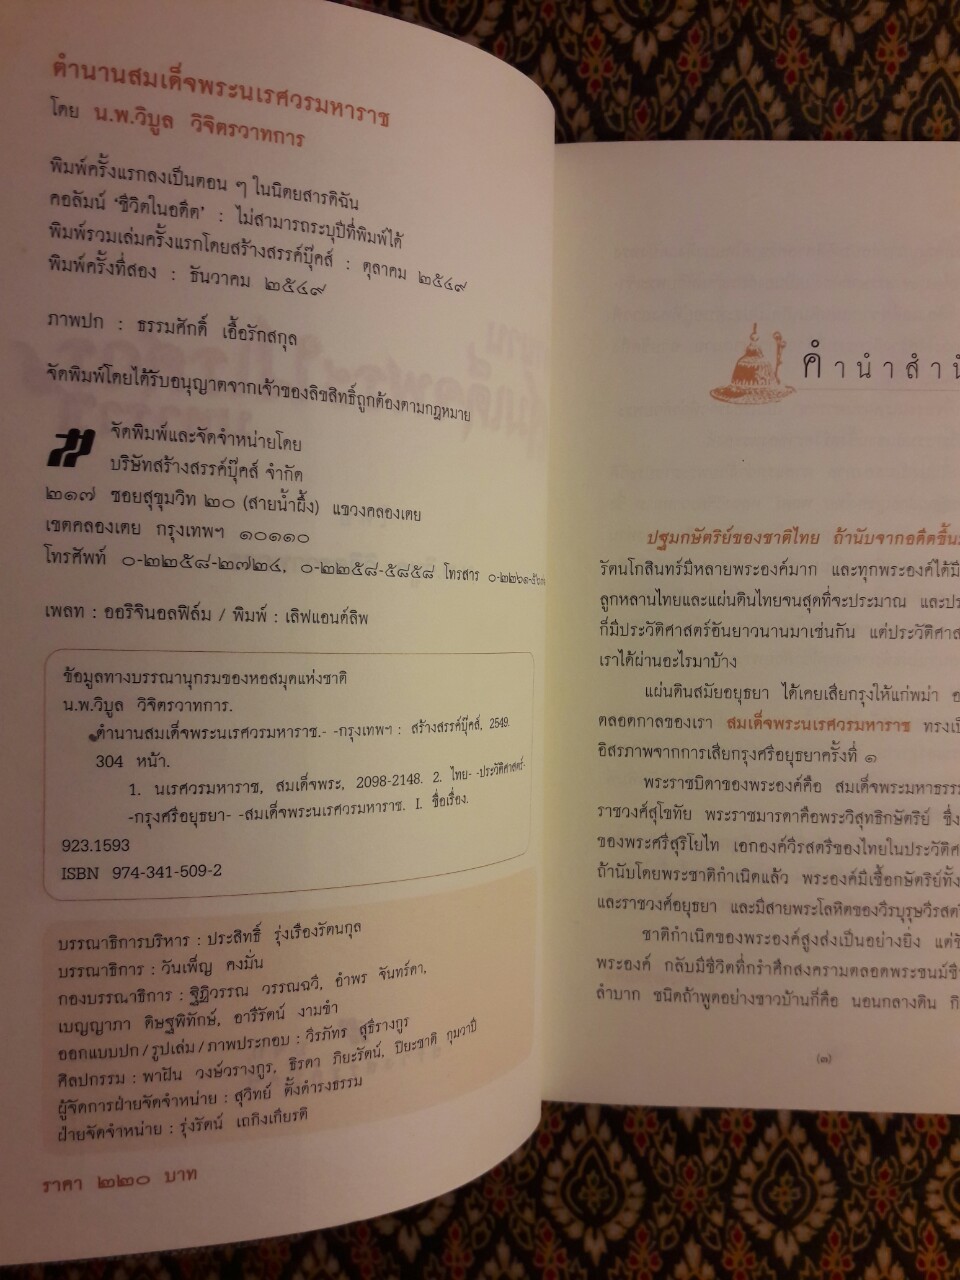 ตำนานสมเด็จพระนเรศวรมหาราช
โดย น.พ.วิบูล วิจิตรวาทการ
พิมพ์ครั้งแรกลงเป็นตอน ๆ ในนิตยสารดิฉัน
คอลัมน์ ‘ชีวิตในอดีต’ : ไม่สามารถระบุปีที่พิมพ์ได้
พิมพ์รวมเล่มครั้งแรกโดยสร้างสรรค์บุ๊คส์ : ตุลาคม ๒๕๔๙
พิมพ์ครั้งที่สอง : ธันวาคม ๒๕๔๙
ภาพปก : ธรรมศักดิ์ เอื้อรักสกุล
จัดพิมพ์โดยได้รับอนุญาตจากเจ้าของลิขสิทธิ์ถูกต้องตามกฎหมาย
จัดพิมพ์และจัดจำหน่ายโดย
บริษัทสร้างสรรค์บุ๊คส์ จำกัด
๒๑๗ ซอยสุขุมวิท ๒๐ (สายน้ำผึ้ง) แขวงคลองเตย
เขตคลองเตย กรุงเทพฯ ๑๐๑๑๐
โทรศัพท์ ๐-๒๒๕๘-๒๗๒๔, ๐-๒๒๕๘-๕๘๕๘ โทรสาร
เพลท : ออริจินอลฟิล์ม / พิมพ์ : เลิฟแอนด์ลิพ
ข้อมูลทางบรรณานุกรมของหอสมุดแห่งชาติ
น.พ.วิบูล วิจิตรวาทการ.
ตำนานสมเด็จพระนเรศวรมหาราช.- -กรุงเทพฯ : สร้างสรรค์บุ๊คส์, 2549.
304 หน้า.
1. นเรศวรมหาราช, สมเด็จพระ, 2098-2148. 2. ไทย- -ประวัติศาสตร์-
-กรุงศรีอยุธยา- -สมเด็จพระนเรศวรมหาราช. I. ชื่อเรื่อง.
923.1593
ISBN 974-341-509-2
บรรณาธิการบริหาร : ประสิทธิ์ รุ่งเรืองรัตนกุล
บรรณาธิการ : วันเพ็ญ คงมั่น
กองบรรณาธิการ : ฐิฏิวรรณ วรรณฉวี, อำพร จันทร์ดา,
เบญญาภา ดิษฐพิทักษ์, อารีรัตน์ งามขำ
ออกแบบปก/รูปเล่ม/ภาพประกอบ : วีรภัทร สุธีรางกูร
ศิลปกรรม : พาฝัน วงษ์วรางกูร, ธิรดา ภิยะรัตน์, ปิยะชาติ กุมวาปี
ผู้จัดการฝ่ายจัดจำหน่าย : สุวิทย์ ตั้งดำรงธรรม
ฝ่ายจัดจำหน่าย : รุ่งรัตน์ เถกิงเกียรติ
ราคา ๒๒๐ บาท
คำนำสำนั
ปฐมกษัตริย์ของชาติไทย ถ้านับจากอดีตขึ้น
รัตนโกสินทร์มีหลายพระองค์มาก และทุกพระองค์ได้มี
ลูกหลานไทยและแผ่นดินไทยจนสุดที่จะประมาณ และปร
ก็มีประวัติศาสตร์อันยาวนานมาเช่นกัน แต่ประวัติศาส
เราได้ผ่านอะไรมาบ้าง
แผ่นดินสมัยอยุธยา ได้เคยเสียกรุงให้แก่พม่า อ
ตลอดกาลของเรา สมเด็จพระนเรศวรมหาราช ทรงเป็
อิสรภาพจากการเสียกรุงศรีอยุธยาครั้งที่ ๑
พระราชบิดาของพระองค์คือ สมเด็จพระมหาธรรม
ราชวงศ์สุโขทัย พระราชมารดาคือพระวิสุทธิกษัตริย์ ซึ่ง
ของพระศรีสุริโยไท เอกองค์วีรสตรีของไทยในประวัติศา
ถ้านับโดยพระชาติกำเนิดแล้ว พระองค์มีเชื้อกษัตริย์ทั้ง
และราชวงศ์อยุธยา และมีสายพระโลหิตของวีรบุรุษวีรสต
ชาติกำเนิดของพระองค์สูงส่งเป็นอย่างยิ่ง แต่ชี
พระองค์ กลับมีชีวิตที่กรำศึกสงครามตลอดพระชนม์ชี
ลำบาก ชนิดถ้าพูดอย่างชาวบ้านก็คือ นอนกลางดิน กิ
(๓)